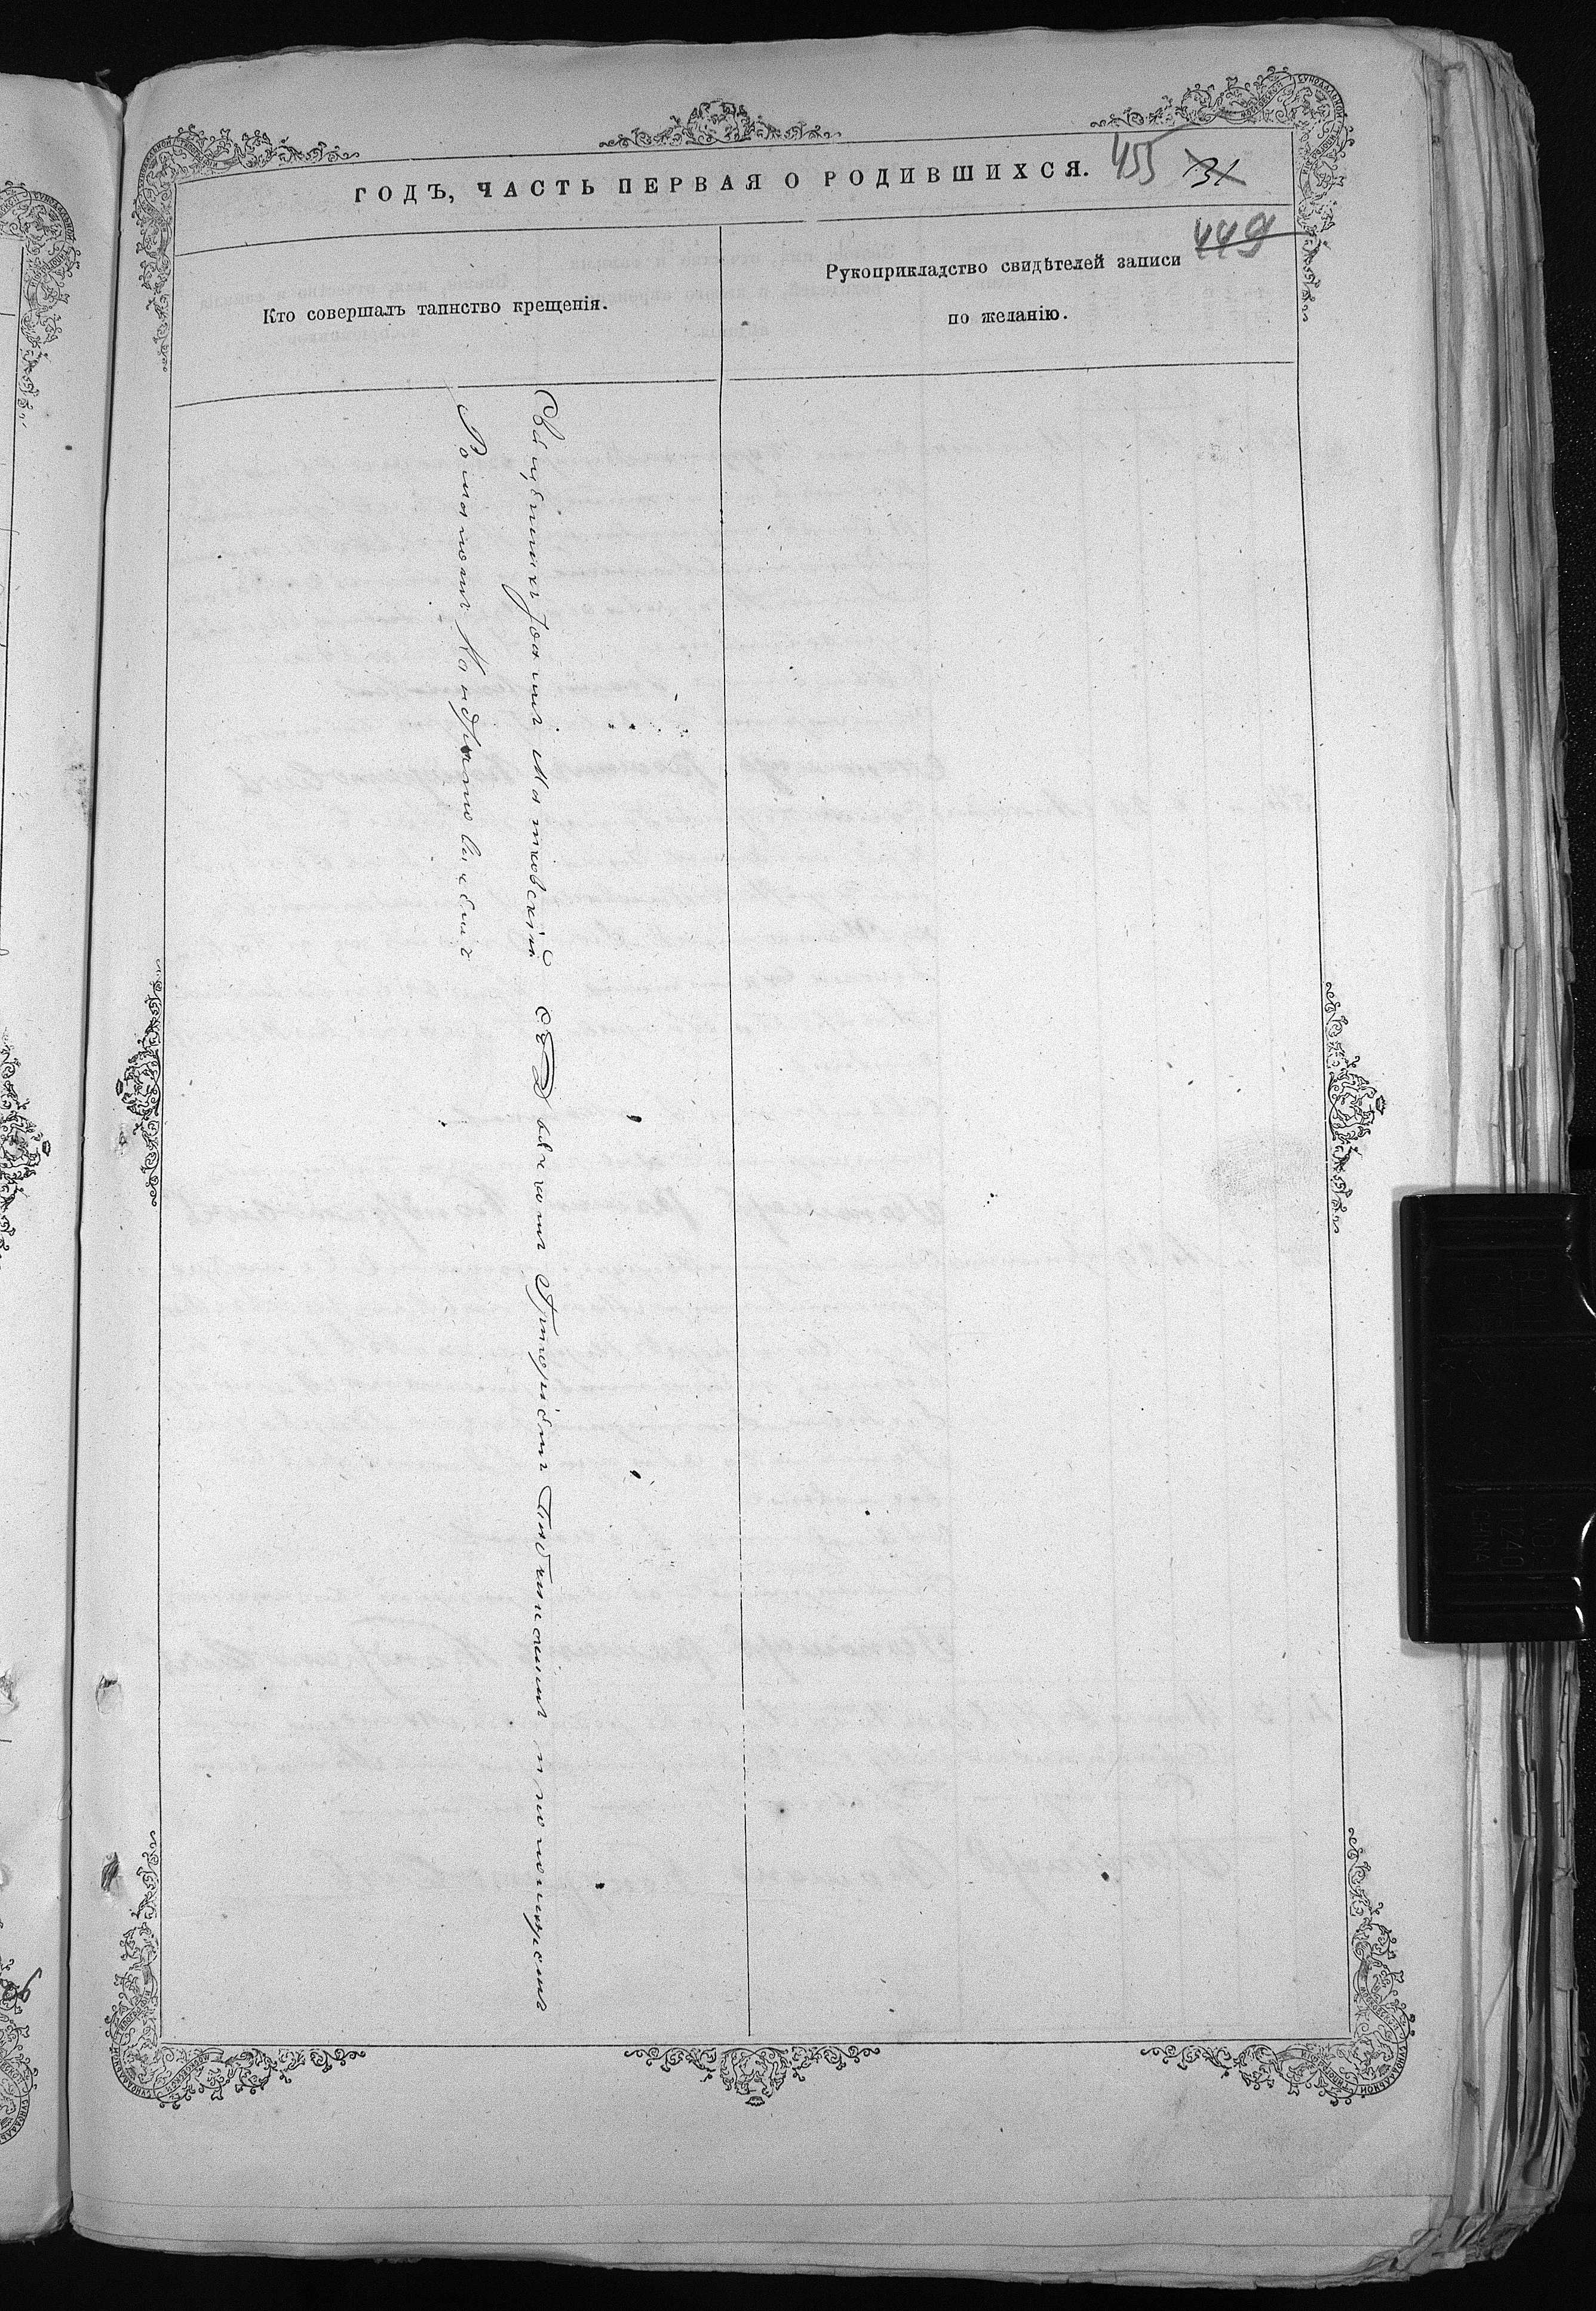 ГОДЪ, ЧАСТЬ ПЕРВАЯ О РОДИВШИХСЯ.
455 31
449
Кто совершалъ таинство крещенія.
Рукоприкладство свидѣтелей записи
по желанію.
Священникъ Іоаннъ съ Дьякономъ Григоріемъ и пономаремъ
Романомъ Кондратовичемъ